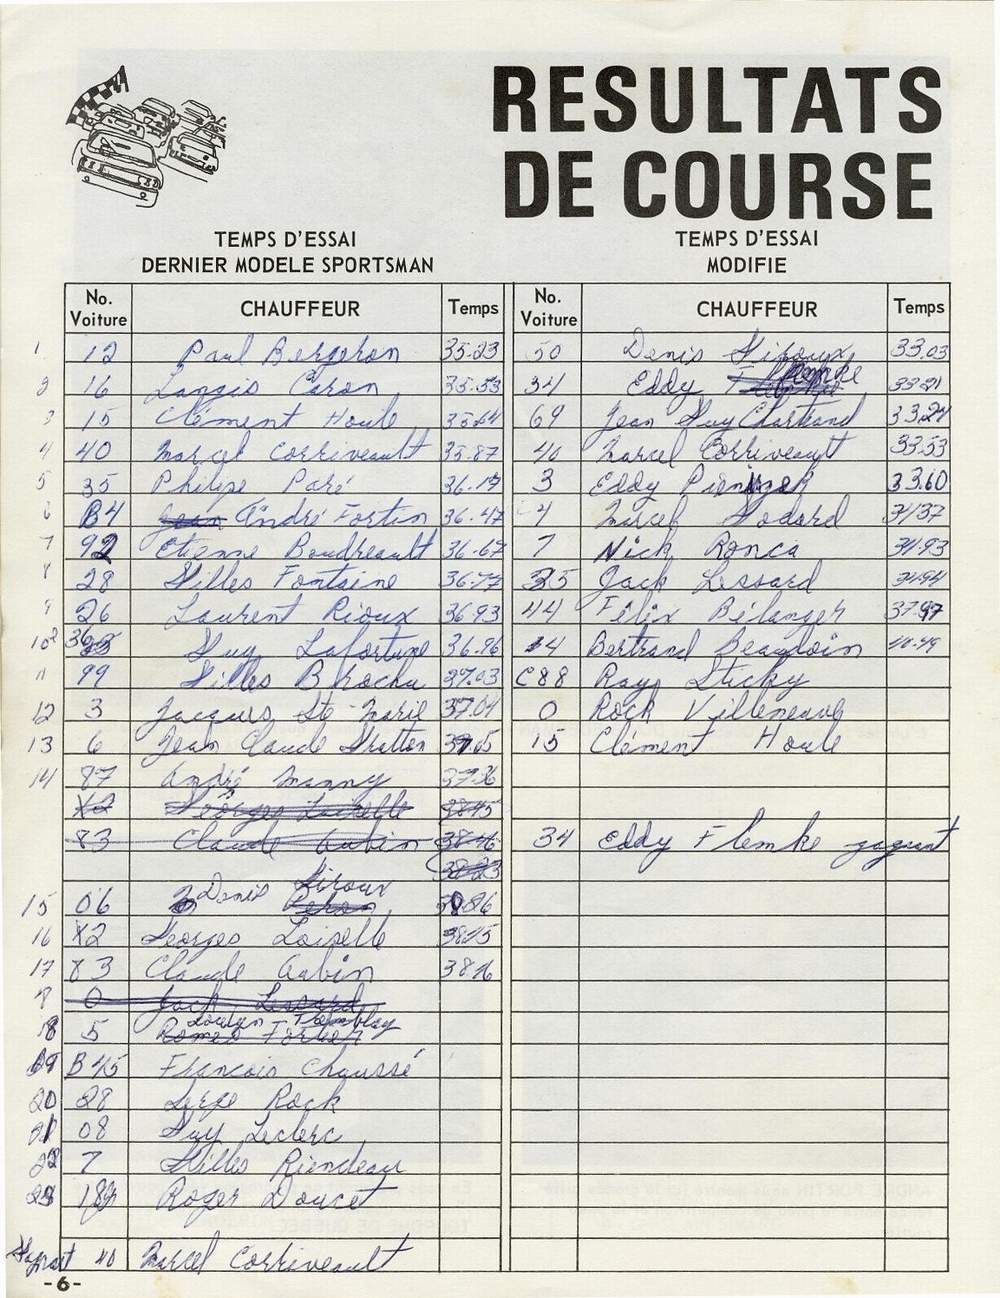 RESULTATS
DE COURSE
TEMPS D'ESSAI
DERNIER MODELE SPORTSMAN
No. Voiture CHAUFFEUR Temps
1 12 Paul Bergeron 35.23
2 16 Langis Caron 35.53
3 15 Clément Houle 35.64
4 40 Marcel Corriveault 35.87
5 35 Philipe Paré 36.17
6 B4 André Fortin 36.47
7 92 Etienne Boudreault 36.67
8 28 Gilles Fontaine 36.77
9 26 Laurent Rioux 36.93
10 36 Guy Lafortune 36.96
11 99 Gilles Brochu 37.03
12 3 Jacques Ste Marie 37.04
13 6 Jean Claude Gratton 37.05
14 87 André Manny 37.36
X2 Georges Loiselle 38.45
83 Claude Aubin 38.46
38.23
15 06 Denis Giroux
16 X2 Georges Loiselle 38.45
17 83 Claude Aubin 38.46
0 Jack Lessard
18 5 Tremblay
19 B45 Francois Chaussé
20 28 Serge Rock
21 08 Guy Leclerc
22 7 Gilles Riendeau
23 Roger Doucet
40 Marcel Corriveault
TEMPS D'ESSAI
MODIFIE
No. Voiture CHAUFFEUR Temps
50 Denis Giroux 33.03
34 Eddy Flemke 33.21
69 Jean Guy Chartrand 33.24
40 Marcel Corriveault 33.53
3 Eddy 33.60
4 Marcel Godard 34.37
7 Nick Ronca 34.93
35 Jack Lessard 34.94
44 Félix Bélanger 37.97
Bertrand Beaudoin 40.49
C88 Ray Sticky
0 Rock Villeneuve
15 Clément Houle
34 Eddy Flemke gagnant
-6-